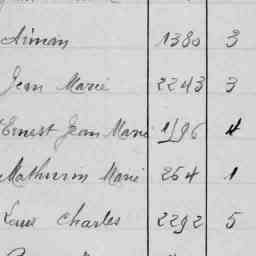 Aiman 1380 3
Jean Marie 2243 3
Ernest Jean Marie 1596 4
Mathurin Marie 254 1
Louis Charles 2292 5